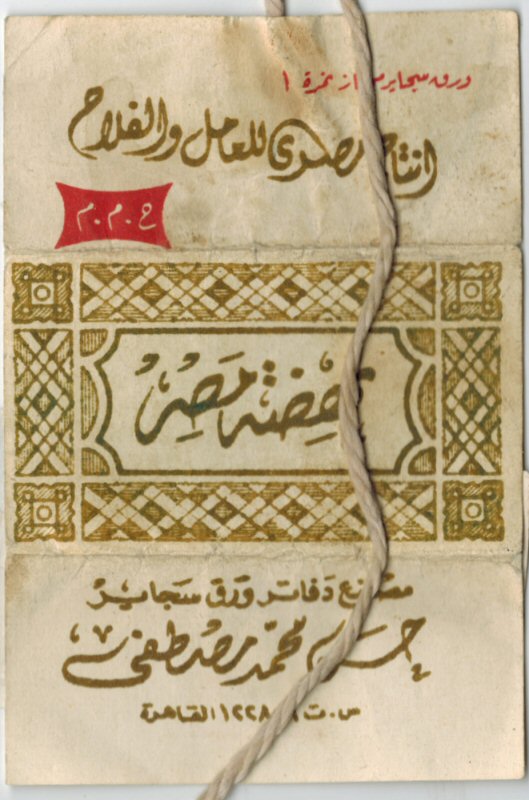 ورق سجاير ممتاز نمرة ١
انتاج مصرى للعامل والفلاح
ح . م . م
نهضة مصر
مصنع دفاتر ورق سجاير
محمد مصطفى
س.ت ١٢٢٨ القاهرة